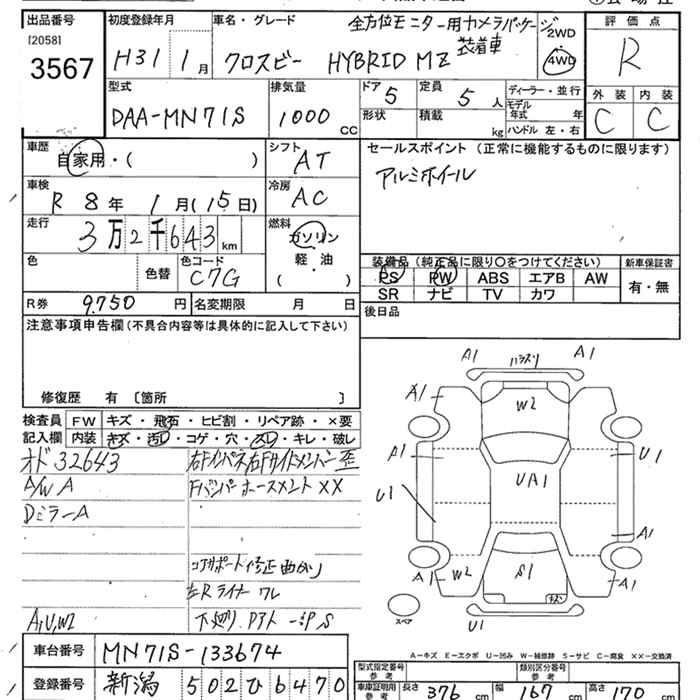 出品番号 初度登録年月 車名・グレード 全方位モニター用カメラパッケージ 装着車 2WD 評価点
[2058]
3567 H31 1月 クロスビー HYBRID MZ 4WD R
型式 排気量 ドア 定員 ディーラー・並行 外装 内装
DAA-MN71S 1000 CC 5 5人 モデル年式 年 C C
形状 積載 kg ハンドル 左・右
車歴 シフト セールスポイント (正常に機能するものに限ります)
自家用・( ) AT アルミホイール
車検 冷房
R 8年 1月(15日) AC
走行 燃料
3万2千643km ガソリン
軽・油
( )
色 色替 色コード 装備品(純正品に限り○をつけてください) 新車保証書
C7G PS PW ABS エアB AW 有・無
SR ナビ TV カワ
R券 9,750円 名変期限 月 日 後日品
注意事項申告欄(不具合内容等は具体的に記入して下さい)
修復歴 有 〔箇所 〕
検査員 FW キズ・飛石・ヒビ割・リペア跡・×要
記入欄 内装 キズ・汚レ・コゲ・穴・スレ・キレ・破レ
オド32643 右Fインパネ右Fサイドメンバー歪
A/W A Fバンパーホースメント XX
DミラーA
コアサポート修正曲がり
左Rライナーワレ
A,U,W2
A1 ハラスリ A1
A1 W2
A1 U1
UA1
U1 A1
A1 W2 S1 A1
キズ
スペア U1
A-キズ E-エクボ U-凹み W-補修跡 S-サビ C-腐食 XX-交換済
車台番号 MN71S-133674
型式指定番号 参考 類別区分番号 参考
登録番号 新潟 502ひ6470
車庫証明用 参考 長さ 376cm 幅 167cm 高さ 170cm